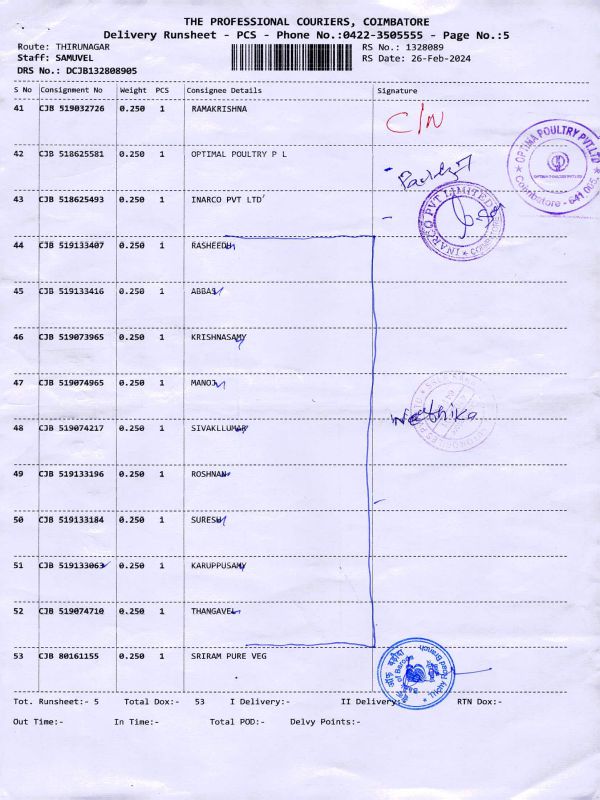 THE PROFESSIONAL COURIERS, COIMBATORE
Delivery Runsheet - PCS - Phone No.:0422-3505555 - Page No.:5
Route: THIRUNAGAR RS No.: 1328089
Staff: SAMUVEL RS Date: 26-Feb-2024
DRS No.: DCJB132808905
S No Consignment No Weight PCS Consignee Details Signature
41 CJB 519032726 0.250 1 RAMAKRISHNA C/N
42 CJB 518625581 0.250 1 OPTIMAL POULTRY P L
OPTIMA POULTRY PVT.LTD
Coimbatore - 641 005.
43 CJB 518625493 0.250 1 INARCO PVT LTD
INARCO PVT LIMITED
COIMBATORE
44 CJB 519133407 0.250 1 RASHEEDU
45 CJB 519133416 0.250 1 ABBAS
46 CJB 519073965 0.250 1 KRISHNASAMY
47 CJB 519074965 0.250 1 MANOJ
Neethika
48 CJB 519074217 0.250 1 SIVAKLLUMAR
49 CJB 519133196 0.250 1 ROSHNAN
50 CJB 519133184 0.250 1 SURESH
51 CJB 519133063 0.250 1 KARUPPUSAMY
52 CJB 519074710 0.250 1 THANGAVEL
53 CJB 80161155 0.250 1 SRIRAM PURE VEG
बैंक ऑफ़ बड़ौदा
Bank of Baroda
Trichy Road Branch
Tot. Runsheet:- 5 Total Dox:- 53 I Delivery:- II Delivery:- RTN Dox:-
Out Time:- In Time:- Total POD:- Delvy Points:-